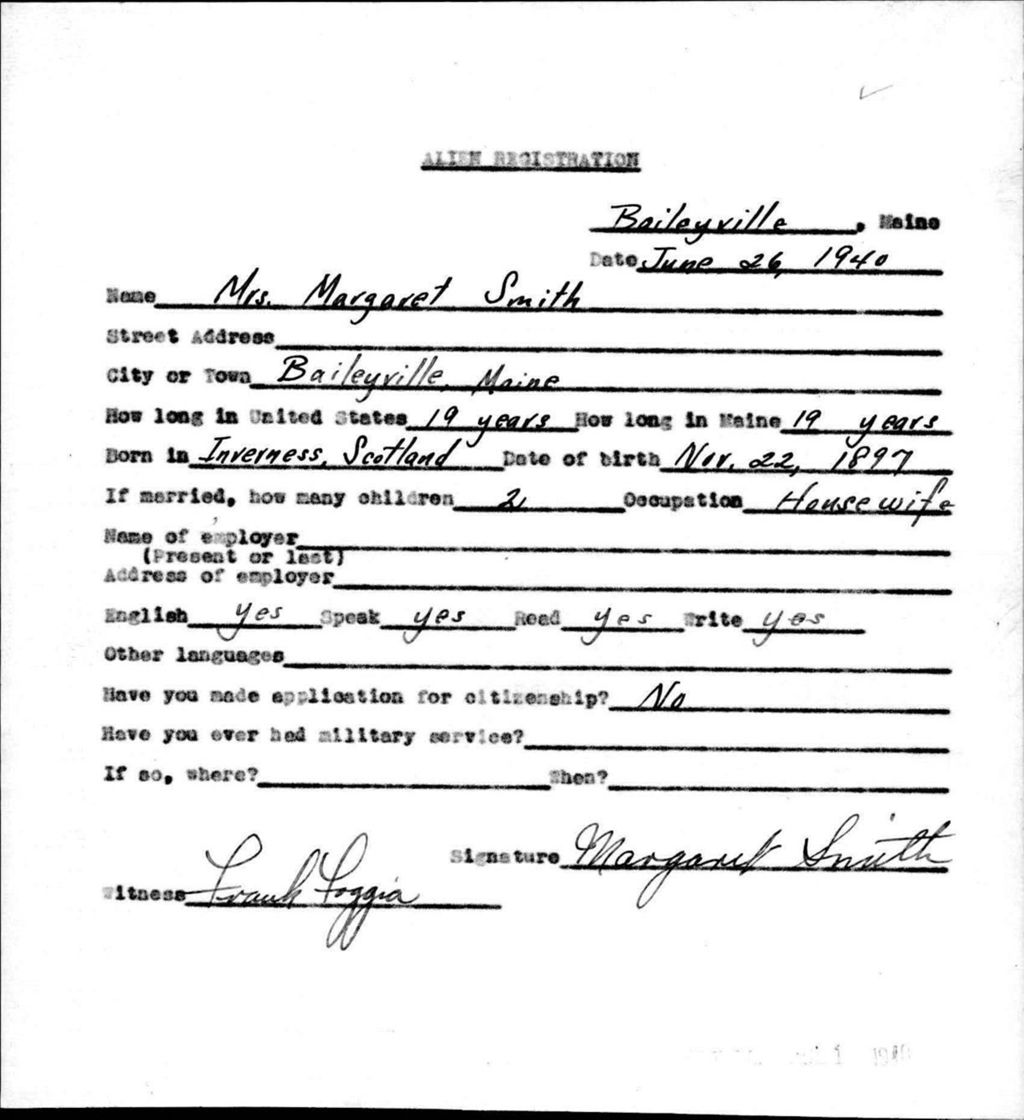 ALIEN REGISTRATION
Baileyville, Maine
Date June 26, 1940
Name Mrs. Margaret Smith
Street Address
City or Town Baileyville, Maine
How long in United States 19 years How long in Maine 19 years
Born in Inverness, Scotland Date of birth Nov. 22, 1897
If married, how many children 2 Occupation Housewife
Name of employer
(Present or last)
Address of employer
English yes Speak yes Read yes Write yes
Other languages
Have you made application for citizenship? No
Have you ever had military service?
If so, where? When?
Signature Margaret Smith
Witness Frank Foggia